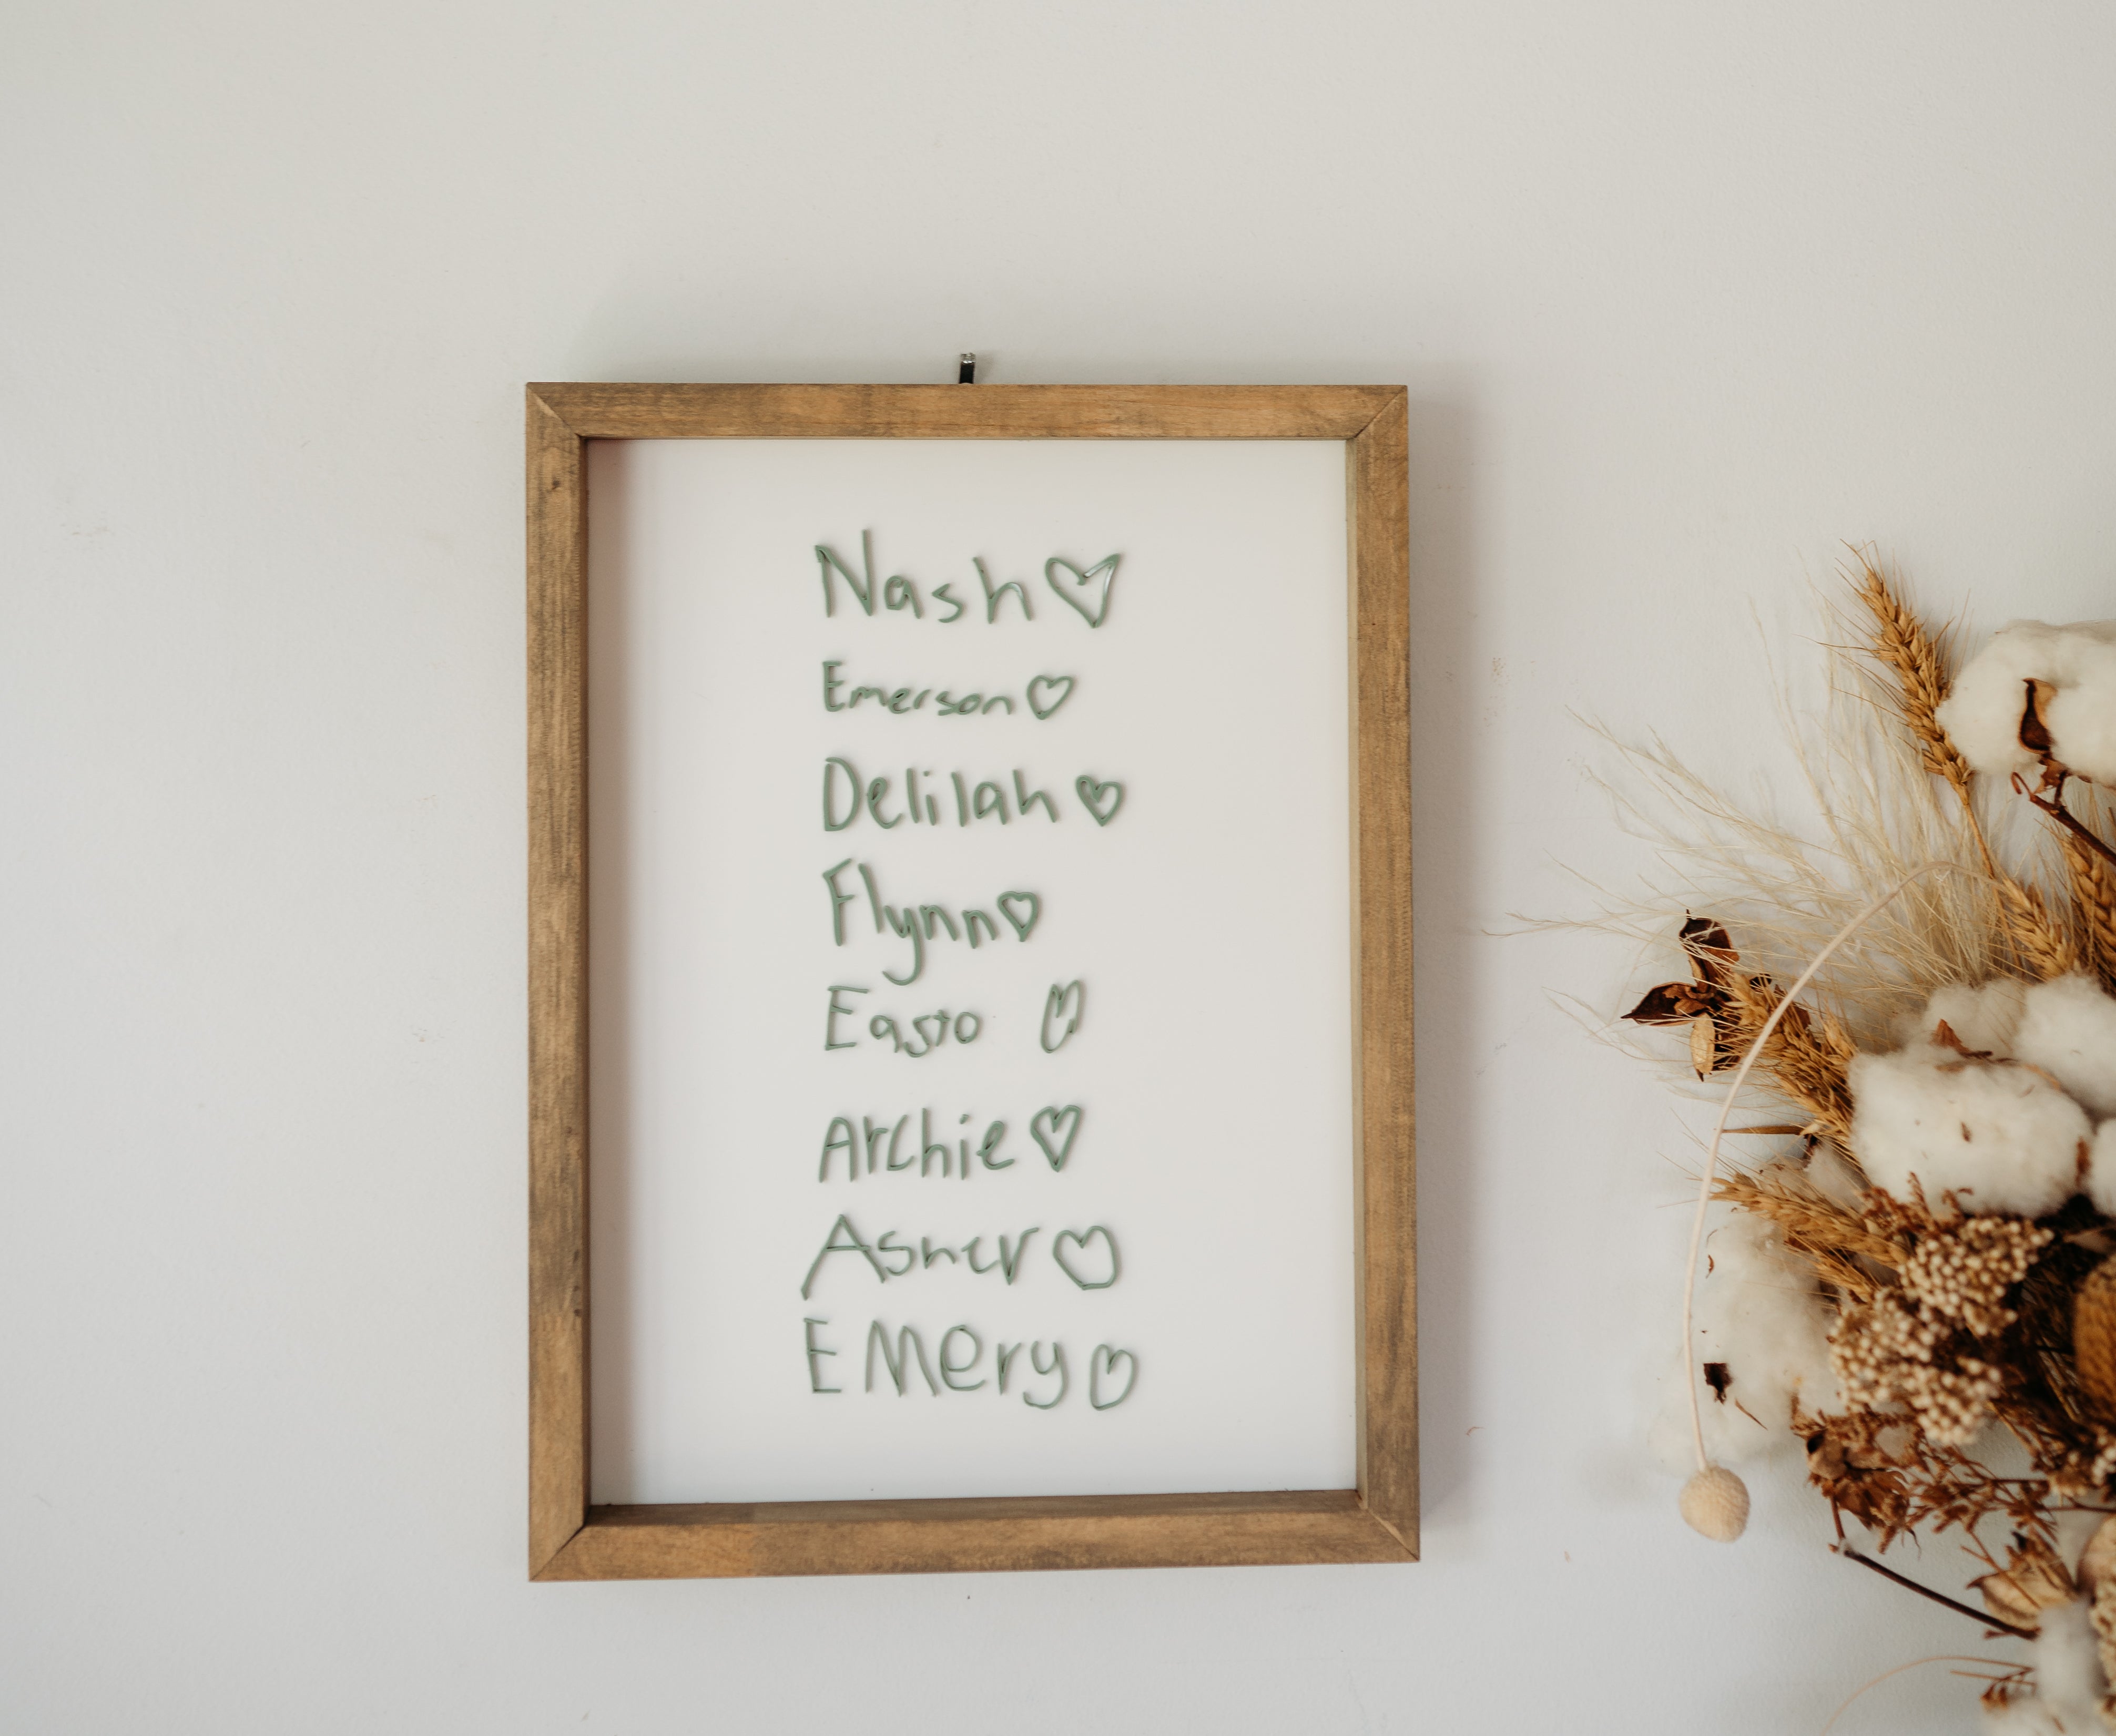 Nash
Emerson
Delilah
Flynn
Easto
Archie
Asher
EMery